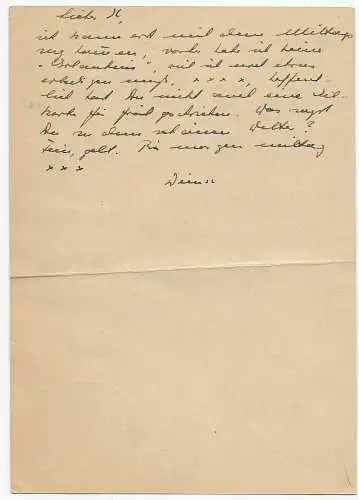 Lieber H,
ich kann erst mit dem Mittags
zug kommen, vorher habe ich keine
"Erlaubnis", weil ich noch etwas
erledigen muß, x x x x, hoffent-
lich hast Du nicht noch eine Eil-
karte für geschrieben. Was sagst
Du zu dem schönen Wetter?
Fein, gelt. Bis morgen mittag
x x x